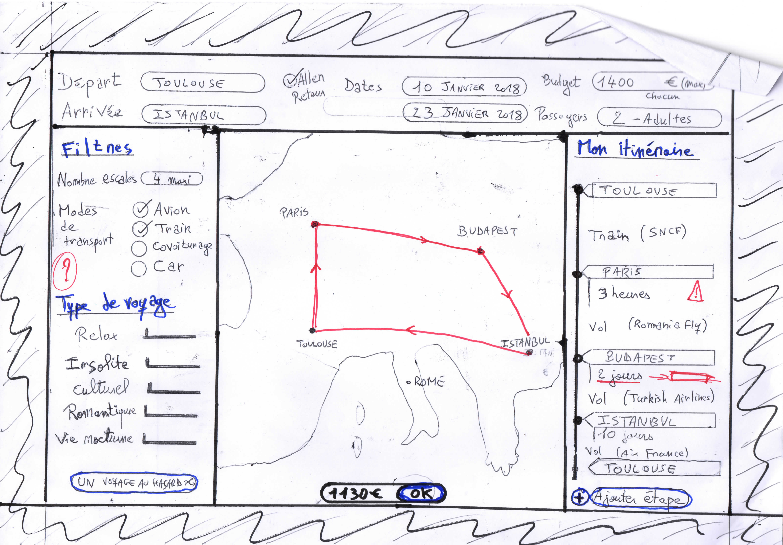 Départ TOULOUSE Aller Retour Dates 10 JANVIER 2018 Budget 1400 € (max) chacun
Arrivée ISTANBUL 23 JANVIER 2018 Passagers 2 - Adultes
Filtres
Nombre escales 4 maxi
Modes de transport
Avion
Train
Covoiturage
Car
?
Type de voyage
Relax
Insolite
Culturel
Romantique
Vie nocturne
UN VOYAGE AU HASARD
PARIS
BUDAPEST
TOULOUSE
ISTANBUL
ROME
1130 € OK
Mon itinéraire
TOULOUSE
Train (SNCF)
PARIS
3 heures !
Vol (Romania Fly)
BUDAPEST
2 jours
Vol (Turkish Airlines)
ISTANBUL
10 jours
Vol (Air France)
TOULOUSE
+ Ajouter étape